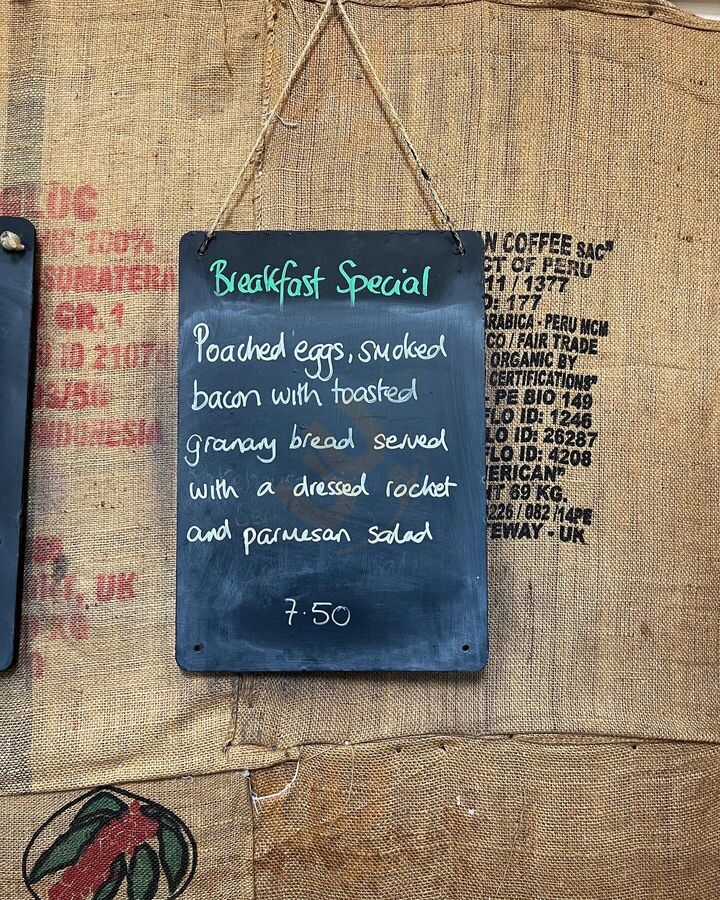 Breakfast Special
Poached eggs, smoked
bacon with toasted
granary bread served
with a dressed rocket
and parmesan salad
7.50
100%
SUMATERA
GR. 1
INDONESIA
UK
N COFFEE SAC"
CT OF PERU
11 / 1377
177
ARABICA - PERU MCM
CO / FAIR TRADE
ORGANIC BY
CERTIFICATIONS"
PE BIO 149
LO ID: 1246
LO ID: 26287
LO ID: 4208
ERICAN"
T 69 KG.
226 / 082 /14PE
EWAY - UK